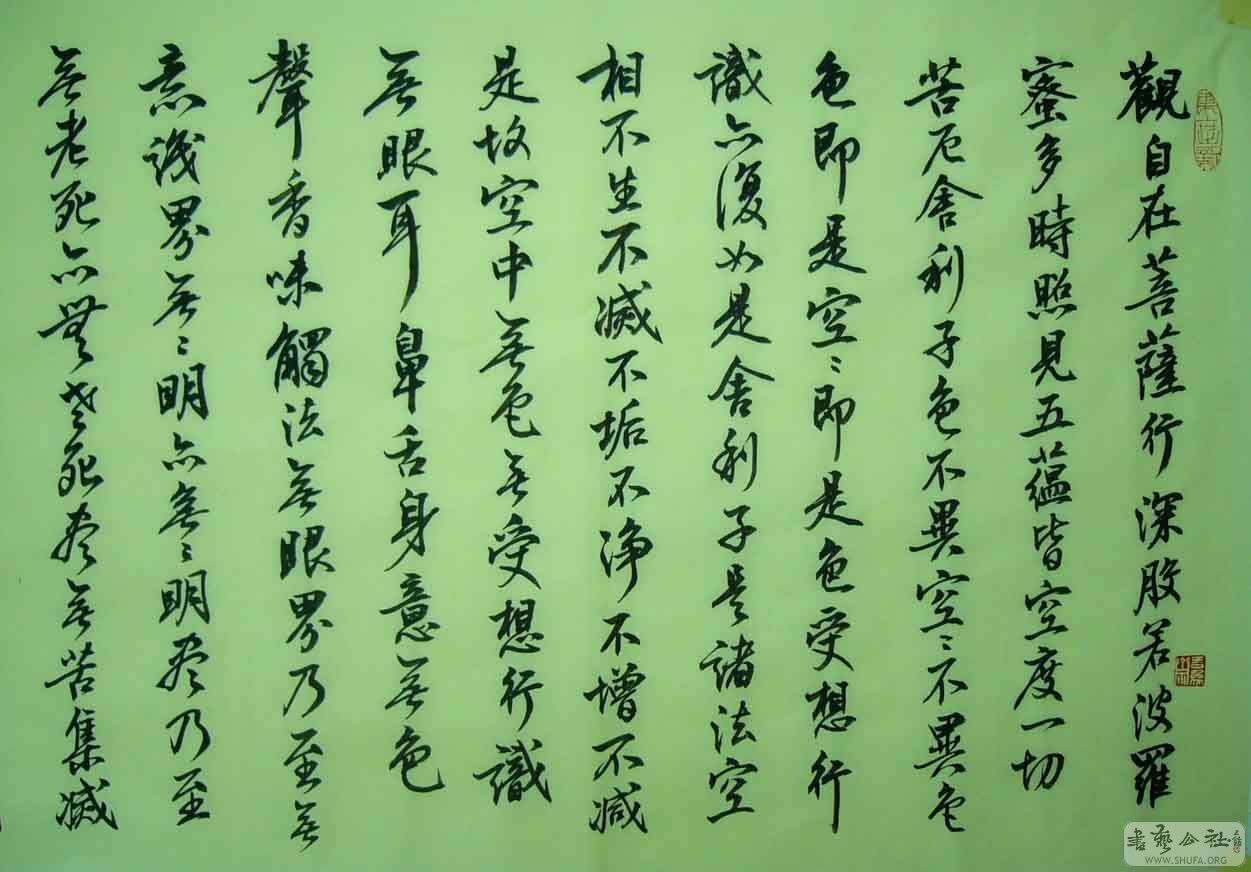 觀自在菩薩行深般若波羅
蜜多時照見五蘊皆空度一切
苦厄舍利子色不異空〻不異色
色即是空〻即是色受想行
識亦復如是舍利子是諸法空
相不生不滅不垢不淨不增不減
是故空中無色無受想行識
無眼耳鼻舌身意無色
聲香味觸法無眼界乃至無
意識界無〻明亦無〻明盡乃至
無老死亦無老死盡無苦集滅
書藝公社
WWW.SHUFA.ORG